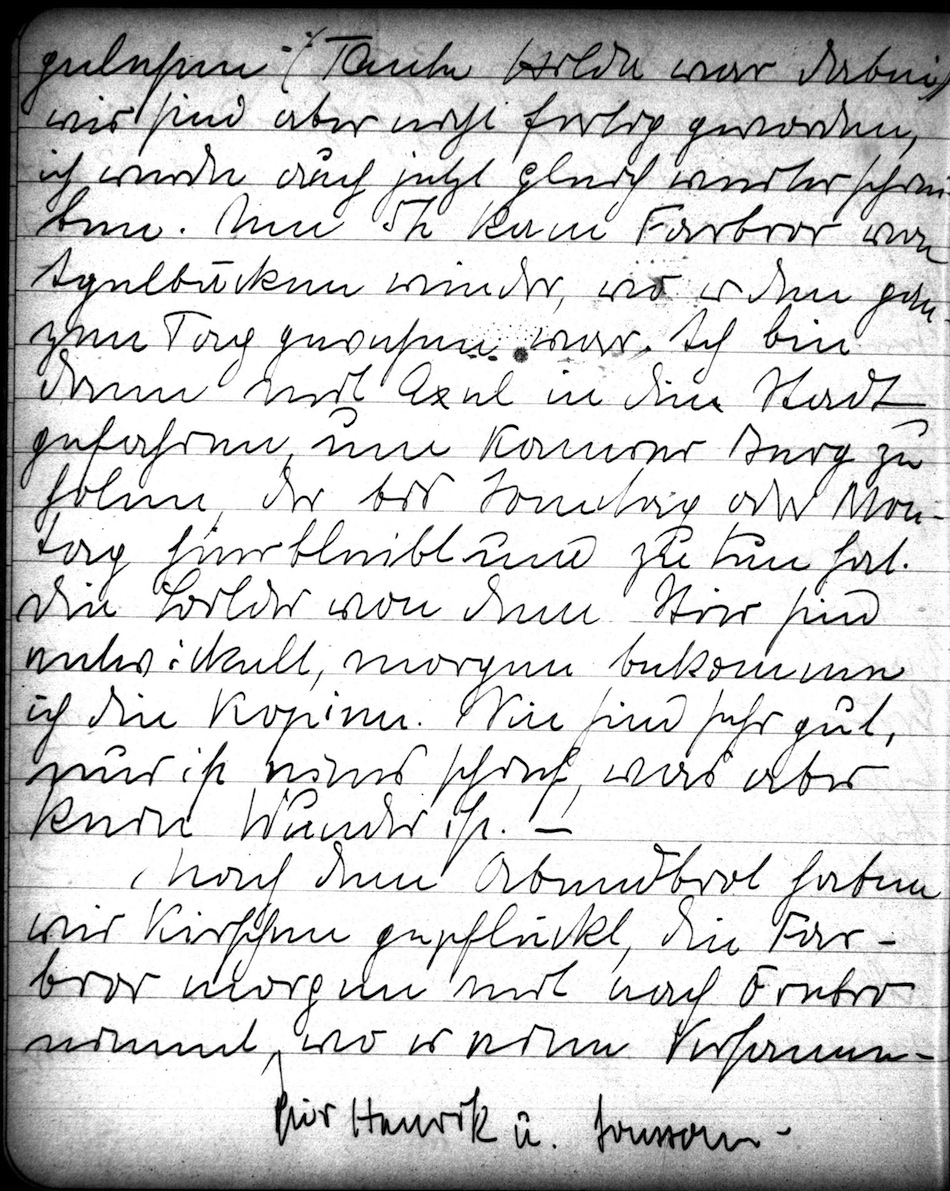 gelesen (Tante Hilda war dabei)
wir sind aber nicht fertig geworden,
ich werde auch jetzt gleich weiter schrei-
ben. Um 5h kam Farbror von
wieder, wo er den gan-
zen Tag gewesen war. Ich bin
dann mit Axel in die Stadt
gefahren, um Kamrer Berg zu
holen, der bis Sonntag oder Mon-
tag hierbleibt und zu tun hat.
Die Bilder von dem Stier sind
entwickelt, morgen bekomme
ich die Kopien. Sie sind sehr gut,
nur ist eines schief, was aber
kein Wunder ist. —
Nach dem Abendbrot haben
wir Kirschen gepflückt, die Far-
bror morgen mit nach Örebro
nimmt, wo er einen
für Henrik u.